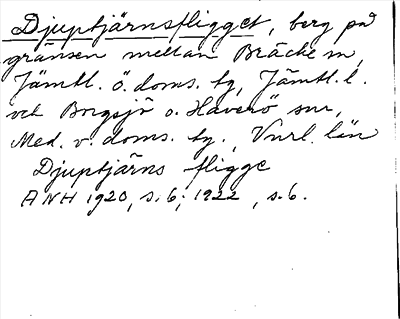 Djuptjärnsfligget, berg på
gränsen mellan Bräcke sn,
Jämtl. ö. doms. tg, Jämtl. l.
och Borgsjö o. Haverö snr,
Med. v. doms. tg., Vnrl. län
Djuptjärns fligge
ANH 1920, s. 6; 1922, s. 6.